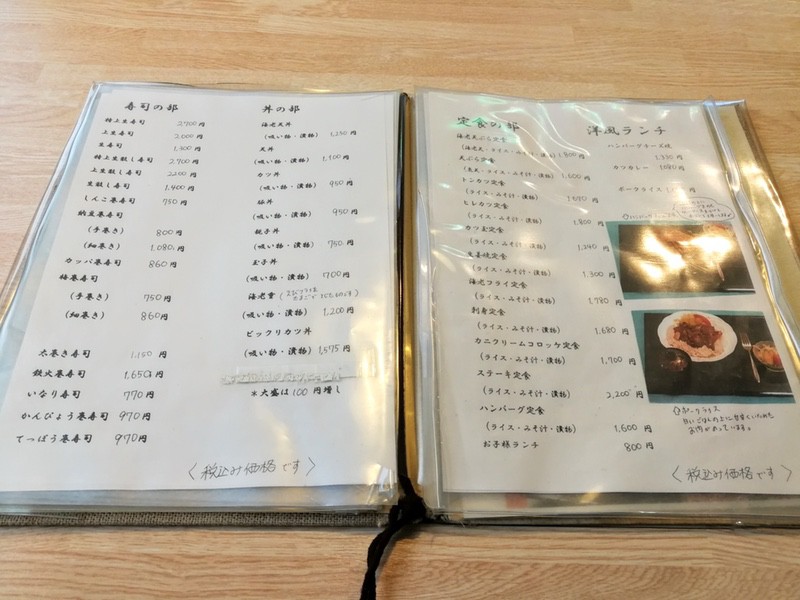 寿司の部
特上生寿司 2,700円
上生寿司 2,000円
生寿司 1,300円
特上生散し寿司 2,700円
上生散し寿司 2,000円
生散し寿司 1,400円
しんこ巻寿司 750円
納豆巻寿司
(手巻き) 800円
(細巻き) 1,080円
カッパ巻寿司 860円
梅巻寿司
(手巻き) 750円
(細巻き) 860円
太巻き寿司 1,150円
鉄火巻寿司 1,650円
いなり寿司 770円
かんぴょう巻寿司 970円
てっぽう巻寿司 970円
丼の部
海老天丼
(吸い物・漬物) 1,250円
天丼
(吸い物・漬物) 1,100円
カツ丼
(吸い物・漬物) 950円
豚丼
(吸い物・漬物) 950円
親子丼
(吸い物・漬物) 750円
玉子丼
(吸い物・漬物) 700円
海老重
(吸い物・漬物) 1,200円
ビックリカツ丼
(吸い物・漬物) 1,575円
*大盛は100円増し
〈税込み価格です〉
定食の部
海老天ぷら定食
(海老天・ライス・みそ汁・漬物) 1,800円
天ぷら定食
(魚天・ライス・みそ汁・漬物) 1,600円
トンカツ定食
(ライス・みそ汁・漬物)
ヒレカツ定食
(ライス・みそ汁・漬物) 1,800円
カツ玉定食
(ライス・みそ汁・漬物) 1,240円
生姜焼定食
(ライス・みそ汁・漬物) 1,300円
海老フライ定食
(ライス・みそ汁・漬物) 1,780円
刺身定食
(ライス・みそ汁・漬物) 1,680円
カニクリームコロッケ定食
(ライス・みそ汁・漬物) 1,700円
ステーキ定食
(ライス・みそ汁・漬物) 2,200円
ハンバーグ定食
(ライス・みそ汁・漬物) 1,600円
お子様ランチ 800円
洋風ランチ
ハンバーグチーズ焼
1,330円
カツカレー 1080円
ポークライス
◇ポークライス
〈税込み価格です〉